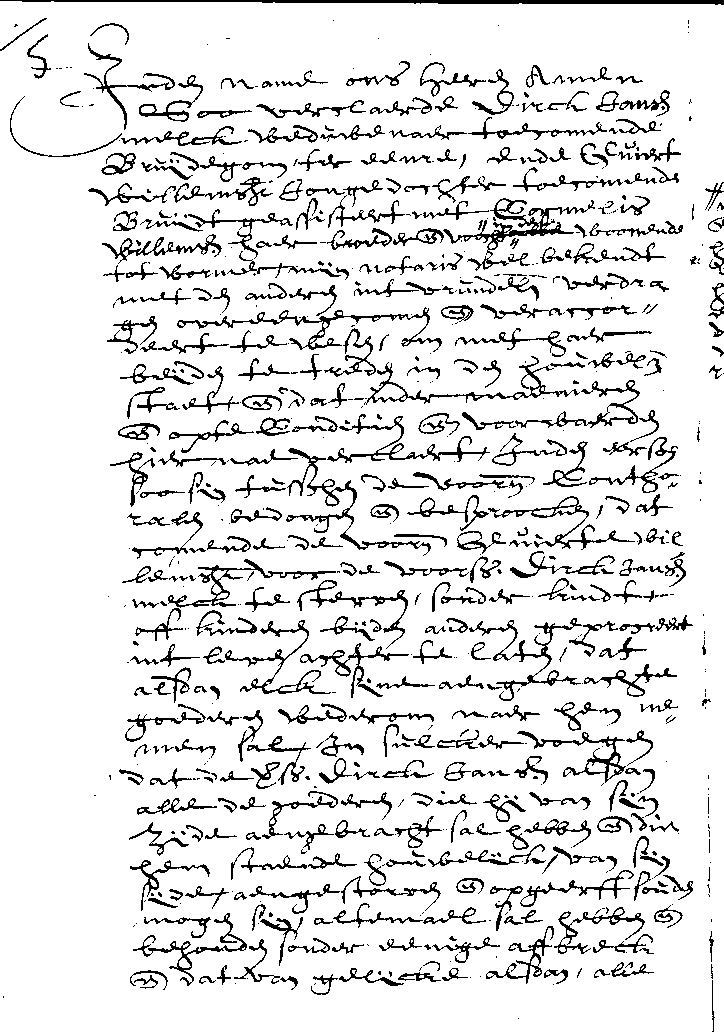 Inden name ons heeren Amen
Soo verclaerde Dirck Jansz
melck weduwenaer toecomende
Bruijdegom ter eenre, ende Sluiert
Willemsz Jonge dochter toecomende
Bruijdt geassisteert met Cornelis
Willemsz haer broeder woonende
tot wormer, mijn notaris wel bekendt
met den anderen int vrundel verdra
gen overeengecomen en veraccor"
deert te wesen, om met haer
beijden te treden in den houwel
staet, en dat inder manieren
en opte Conditien en voorwaerden
hier nae verclaert, Inden eersten
soo sijn tusschen de voorn Contho-
ralen bedongen en besproocken, dat
comende de voorn Sluierte Wil
lemsz voor de voorss. Dirck Jansz
melck te sterven, sonder kindt
off kinderen bijden anderen geprocreert
int leven achter te laten, dat
alsdan elck sijne aengebrachte
goederen wederom naer hem ne-
men sal, In sulcker voegen
dat de vss. Dirck Jansz alsdan
alle de goederen, die hij van sijn
zijde aengebracht sal hebben en die
hem staende houwelijck, van sijn
sijde, aengestorven en opgeerft souden
mogen sijn, altemael sal hebben en
behouden sonder eenige affbreck
en dat van gelijcke alsdan, alle